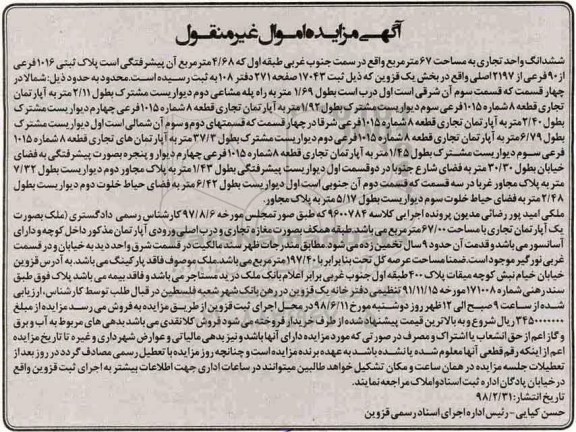 آگهی مزایده اموال غیرمنقول
ششدانگ واحد تجاری به مساحت ۶۷ مترمربع واقع در سمت جنوب غربی طبقه اول که ۴/۶۸ مترمربع آن پیشرفتگی است پلاک ثبتی ۱۰۱۶ فرعی
از ۹۰ فرعی از ۲۱۹۷ اصلی واقع در بخش یک قزوین که ذیل ثبت ۱۷۰۴۳ صفحه ۲۷۱ دفتر ۱۰۸ به ثبت رسیده است. محدود به حدود ذیل: شمالا در
چهار قسمت که قسمت سوم آن شرقی است اول درب است بطول ۱/۶۹ متر به راه پله مشاعی دوم دیواریست مشترک بطول ۲/۱۱ متر به آپارتمان
تجاری قطعه ۸ شماره ۱۰۱۵ فرعی سوم دیواریست مشترک بطول ۱/۹۲ متر به آپارتمان تجاری قطعه ۸ شماره ۱۰۱۵ فرعی چهارم دیواریست مشترک
بطول ۲/۴۰ متر به آپارتمان تجاری قطعه ۸ شماره ۱۰۱۵ فرعی شرقا در چهار قسمت که قسمتهای دوم و سوم آن شمالی است اول دیواریست مشترک
بطول ۶/۷۹ متر به آپارتمان تجاری قطعه ۸ شماره ۱۰۱۵ فرعی دوم دیواریست مشترک بطول ۳۷/۳ متر به آپارتمان های تجاری قطعه ۸ شماره ۱۰۱۵
فرعی سوم دیواریست مشترک بطول ۱/۴۵ متر به آپارتمان تجاری قطعه ۸ شماره ۱۰۱۵ فرعی چهارم دیوار و پنجره بصورت پیشرفتگی به فضای
خیابان بطول ۳۰/۳۰ متر به فضای شارع جنوبا در دو قسمت اول دیواریست پیشرفتگی بطول ۱/۴۳ متر به پلاک مجاور دوم دیواریست بطول ۷/۳۲
متر به پلاک مجاور غربا در سه قسمت که قسمت دوم آن جنوبی است اول دیواریست بطول ۶/۴۲ متر به فضای حیاط خلوت دوم دیواریست بطول
۲/۴۸ متر به فضای حیاط خلوت سوم دیواریست بطول ۵/۱۷ متر به پلاک مجاور.
ملکی امید پور رضائی مدیون پرونده اجرایی کلاسه ۹۶۰۰۷۸۴ که طبق صورتمجلس مورخه ۹۷/۸/۶ کارشناس رسمی دادگستری (ملک بصورت
یک آپارتمان تجاری با مساحت ۶۷/۰۰ مترمربع می باشد. طبقه همکف بصورت مغازه تجاری و درب اصلی ورودی آپارتمان مذکور داخل کوچه و دارای
آسانسور می باشد و قدمت آن حدود ۹ سال تخمین زده می شود. مطابق مندرجات ظهر سند مالکیت در قسمت شرق واحد دید به خیابان و در قسمت
غربی نورگیر موجود است. ضمنا مساحت عرصه کل تحت بنا برابر با ۱۹۷/۴۰ مترمربع می باشد. ملک موصوف فاقد پارکینگ می باشد. به آدرس قزوین
خیابان خیام نبش کوچه میقات پلاک ۴۰۰ طبقه اول جنوب غربی برابر اعلام بانک ملک در ید مستاجر می باشد و فاقد بیمه می باشد پلاک فوق طبق
سند رهنی شماره ۱۷۱۰۰۸ مورخه ۹۱/۱۱/۱۵ تنظیمی دفترخانه یک قزوین در رهن بانک شهر شعبه فلسطین در قبال طلب توسط کارشناس، ارزیابی
شده از ساعت ۹ صبح الی ۱۲ ظهر روز دوشنبه مورخ ۹۸/۶/۱۱ در محل اجرای ثبت قزوین از طریق مزایده به فروش می رسد مزایده از مبلغ
ریال شروع و به بالاترین قیمت پیشنهاد شده از طرف خریدار فروخته می شود فروش کلا نقدی می باشد بدهی های مربوط به آب و برق
و گاز اعم از حق انشعاب یا اشتراک و مصرف در صورتی که مورد مزایده دارای آنها باشد و نیز بدهی مالیاتی و عوارض شهرداری و غیره تا تاریخ مزایده
اعم از اینکه رقم قطعی آنها معلوم شده یا نشده باشد به عهده برنده مزایده است و چنانچه روز مزایده با تعطیل رسمی مصادف گردد در روز بعد از
تعطیلات جلسه مزایده در همان ساعت و مکان تشکیل خواهد طالبین میتوانند در ساعات اداری جهت اطلاعات بیشتر به اجرای ثبت قزوین واقع
در خیابان پادگان اداره ثبت اسناد و املاک مراجعه نمایند.
تاریخ انتشار: ۹۸/۲/۳۱
حسن کیایی - رئیس اداره اجرای اسناد رسمی قزوین